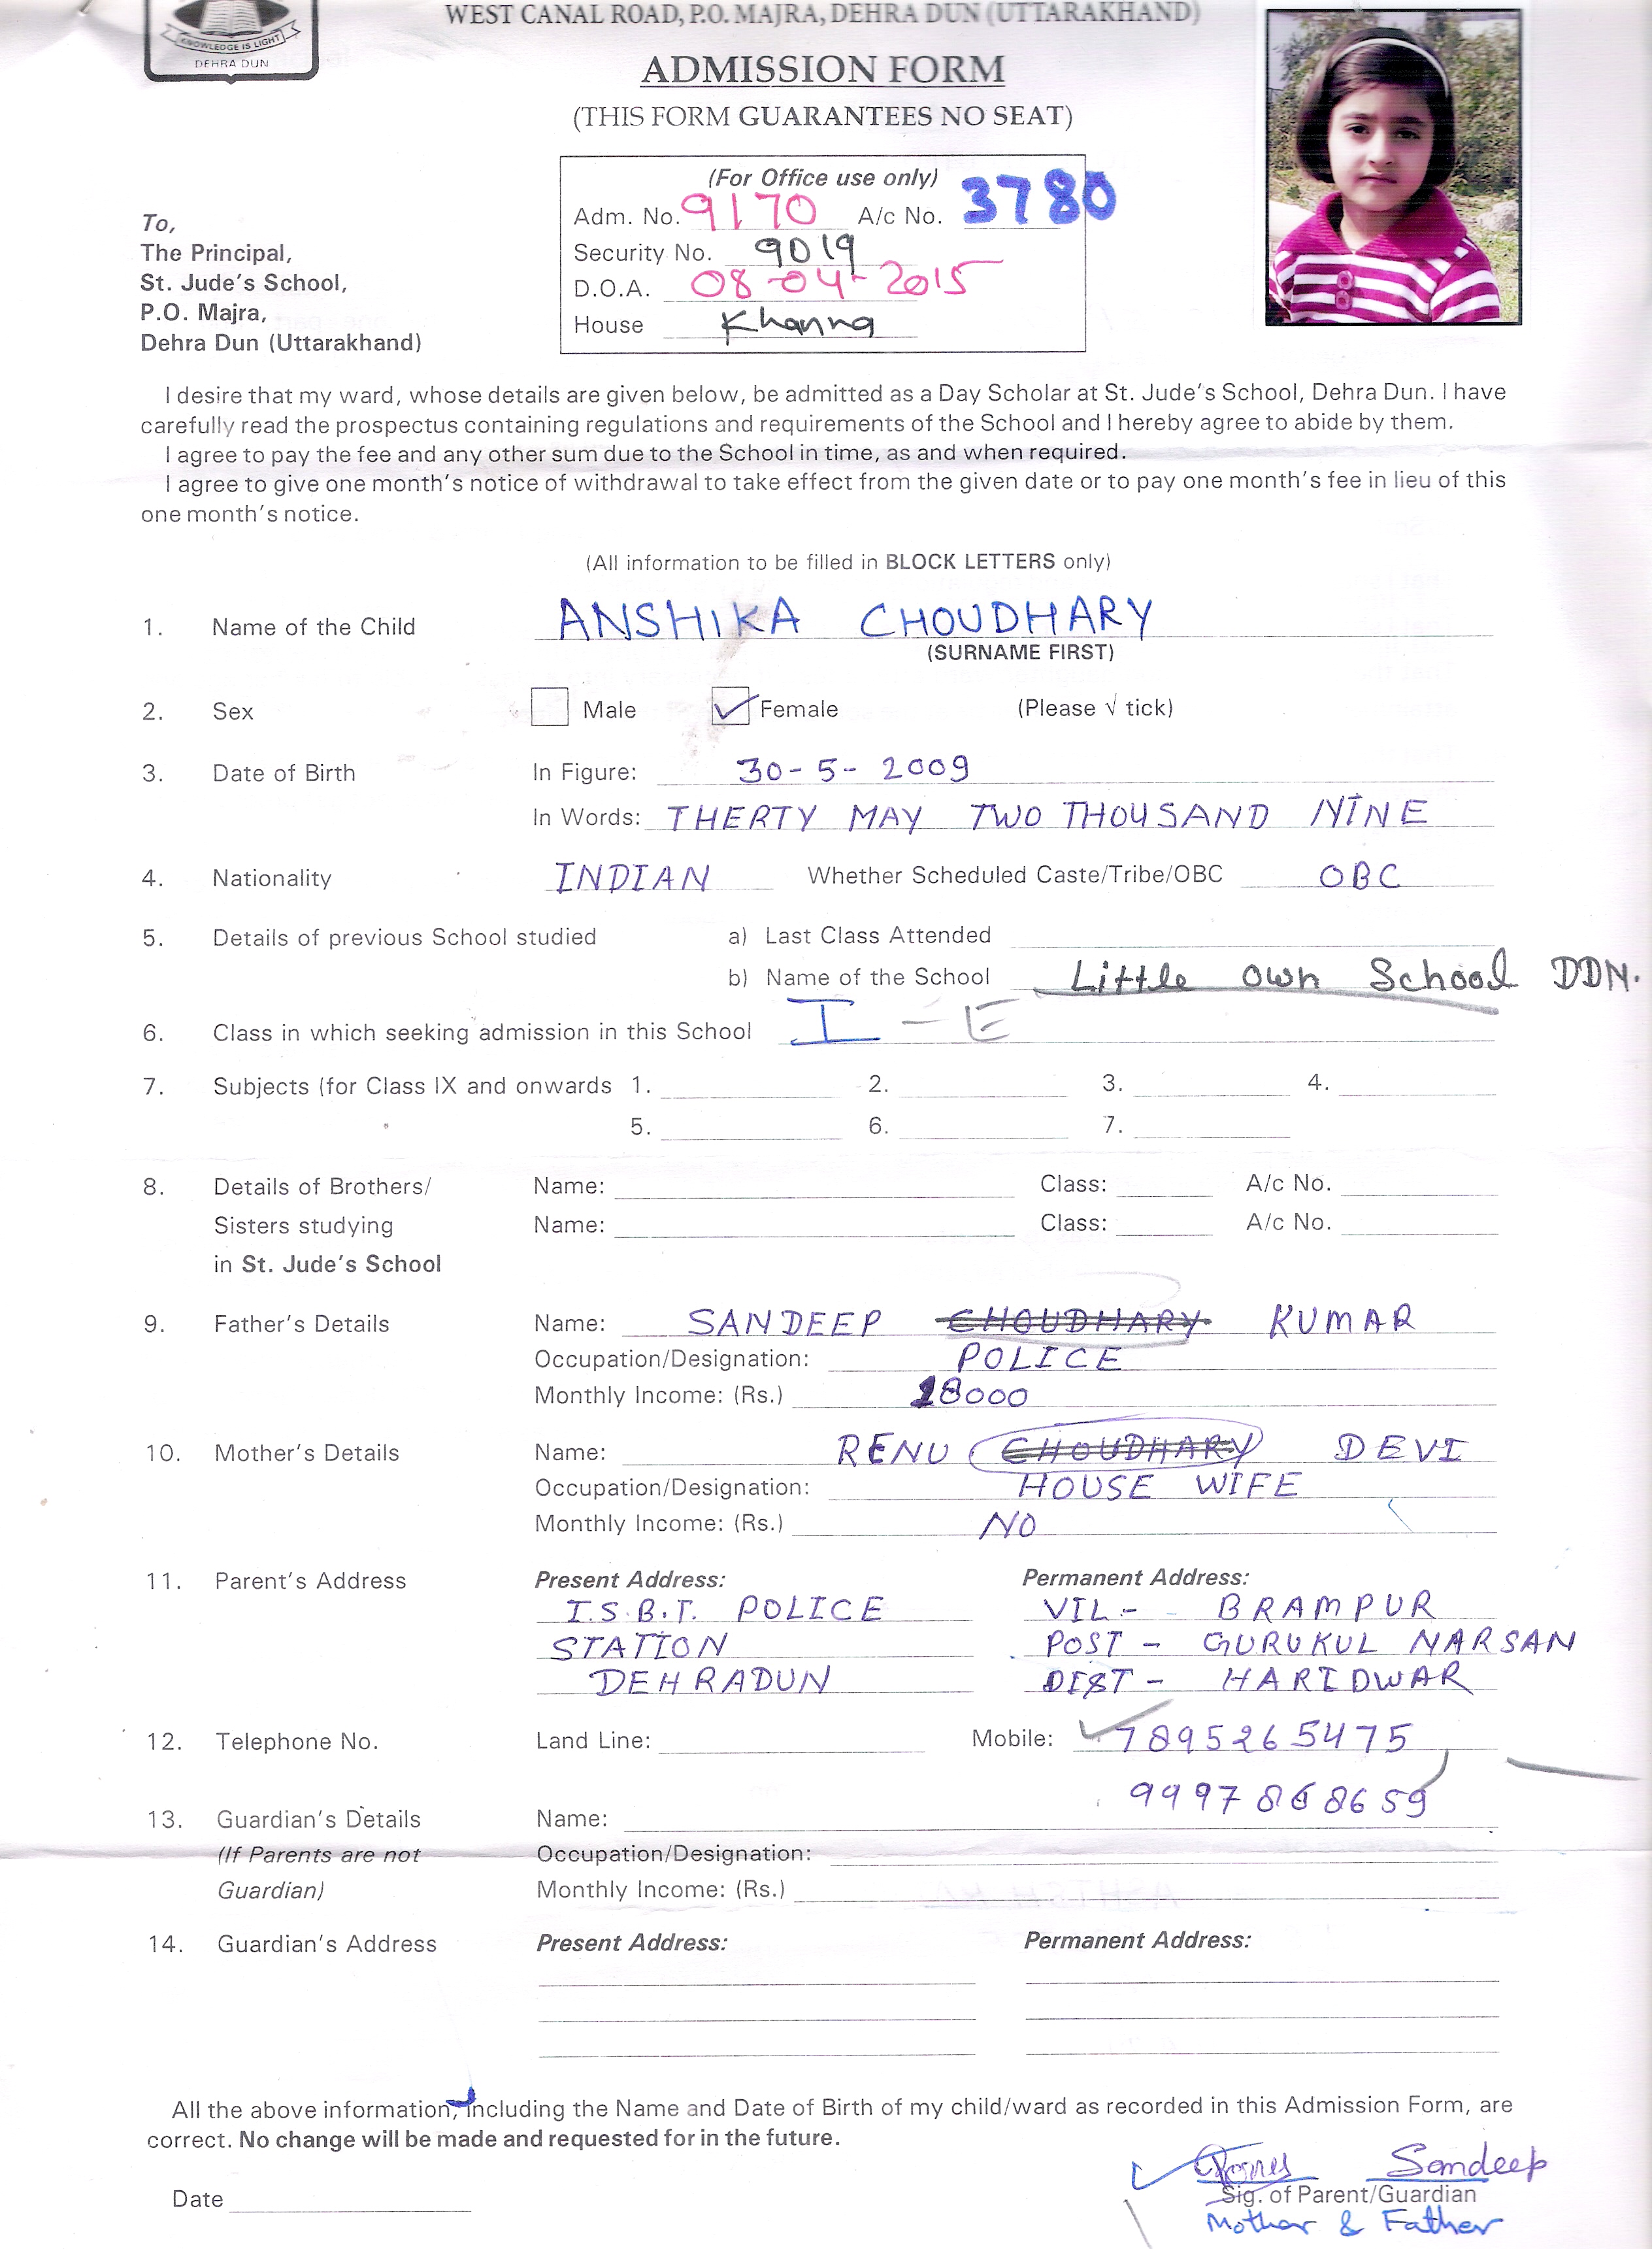 KNOWLEDGE IS LIGHT
DEHRA DUN
WEST CANAL ROAD, P.O. MAJRA, DEHRA DUN (UTTARAKHAND)
ADMISSION FORM
(THIS FORM GUARANTEES NO SEAT)
(For Office use only)
Adm. No. 9170 A/c No. 3780
Security No. 9019
D.O.A. 08-04-2015
House Khanna
To,
The Principal,
St. Jude's School,
P.O. Majra,
Dehra Dun (Uttarakhand)
I desire that my ward, whose details are given below, be admitted as a Day Scholar at St. Jude's School, Dehra Dun. I have
carefully read the prospectus containing regulations and requirements of the School and I hereby agree to abide by them.
I agree to pay the fee and any other sum due to the School in time, as and when required.
I agree to give one month's notice of withdrawal to take effect from the given date or to pay one month's fee in lieu of this
one month's notice.
(All information to be filled in BLOCK LETTERS only)
1. Name of the Child ANSHIKA CHOUDHARY
(SURNAME FIRST)
2. Sex Male ✓ Female (Please √ tick)
3. Date of Birth In Figure: 30-5-2009
In Words: THERTY MAY TWO THOUSAND NINE
4. Nationality INDIAN Whether Scheduled Caste/Tribe/OBC OBC
5. Details of previous School studied a) Last Class Attended
b) Name of the School Little Own School DDN.
6. Class in which seeking admission in this School I - E
7. Subjects (for Class IX and onwards 1. 2. 3. 4.
5. 6. 7.
8. Details of Brothers/ Name: Class: A/c No.
Sisters studying Name: Class: A/c No.
in St. Jude's School
9. Father's Details Name: SANDEEP CHOUDHARY KUMAR
Occupation/Designation: POLICE
Monthly Income: (Rs.) 18000
10. Mother's Details Name: RENU CHOUDHARY DEVI
Occupation/Designation: HOUSE WIFE
Monthly Income: (Rs.) NO
11. Parent's Address Present Address: Permanent Address:
I.S.B.T. POLICE VIL- BRAMPUR
STATION POST - GURUKUL NARSAN
DEHRADUN DIST - HARIDWAR
12. Telephone No. Land Line: Mobile: 7895265475
9997868659
13. Guardian's Details Name:
(If Parents are not Occupation/Designation:
Guardian) Monthly Income: (Rs.)
14. Guardian's Address Present Address: Permanent Address:
All the above information, including the Name and Date of Birth of my child/ward as recorded in this Admission Form, are
correct. No change will be made and requested for in the future.
Sandeep
Date Sig. of Parent/Guardian
Mother & Father